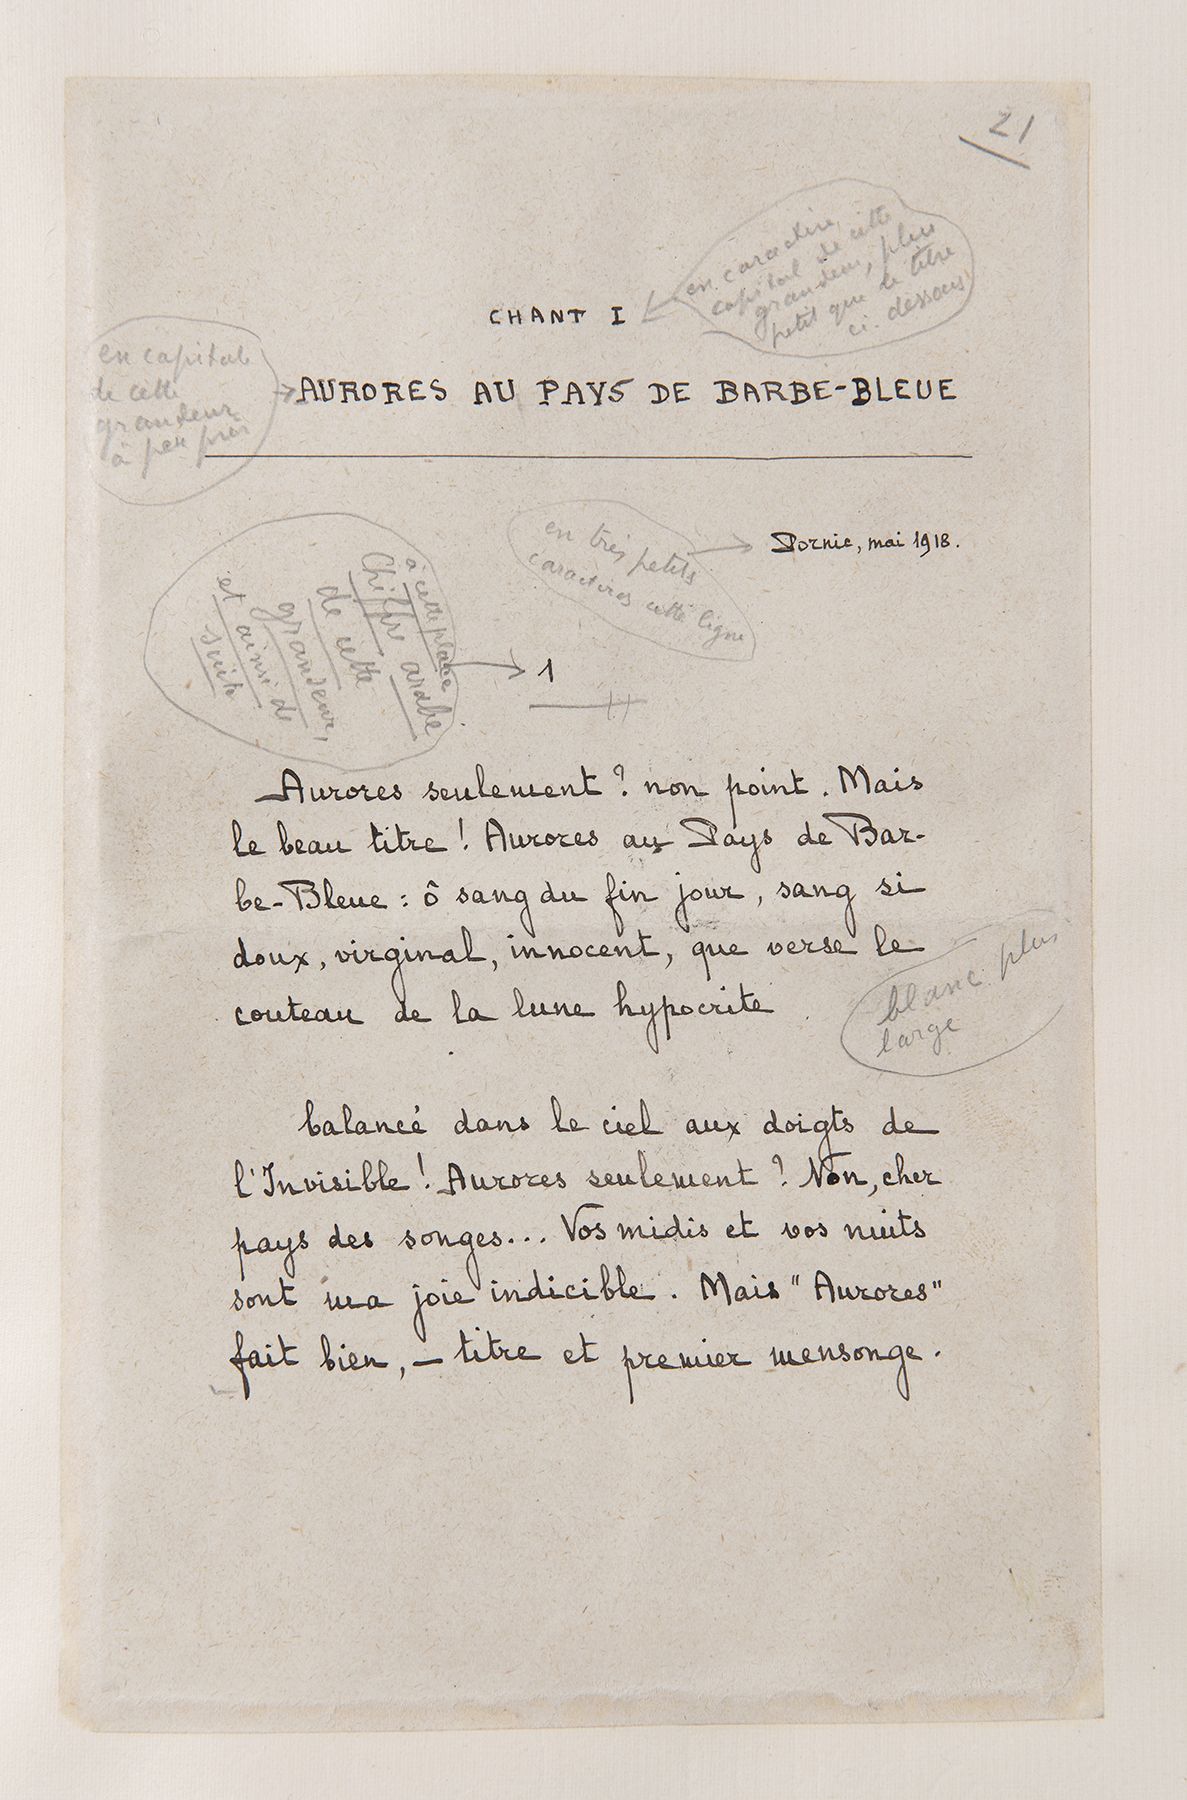 21
en caractère
capital de cette
grandeur, plus
petit que le titre
ci-dessous
CHANT I
en capitale
de cette
grandeur
à peu près
AURORES AU PAYS DE BARBE-BLEUE
en très petits
caractères cette ligne
Pornic, mai 1918.
à cette place
Chiffre arabe
de cette
grandeur,
et ainsi de
suite
1
Aurores seulement ? non point. Mais
le beau titre ! Aurores au Pays de Bar-
be-Bleue : ô sang du fin jour, sang si
doux, virginal, innocent, que verse le
couteau de la lune hypocrite
blanc plus
large
balancé dans le ciel aux doigts de
l'Invisible ! Aurores seulement ? Non, cher
pays des songes... Vos midis et vos nuits
sont ma joie indicible. Mais "Aurores"
fait bien, — titre et premier mensonge.